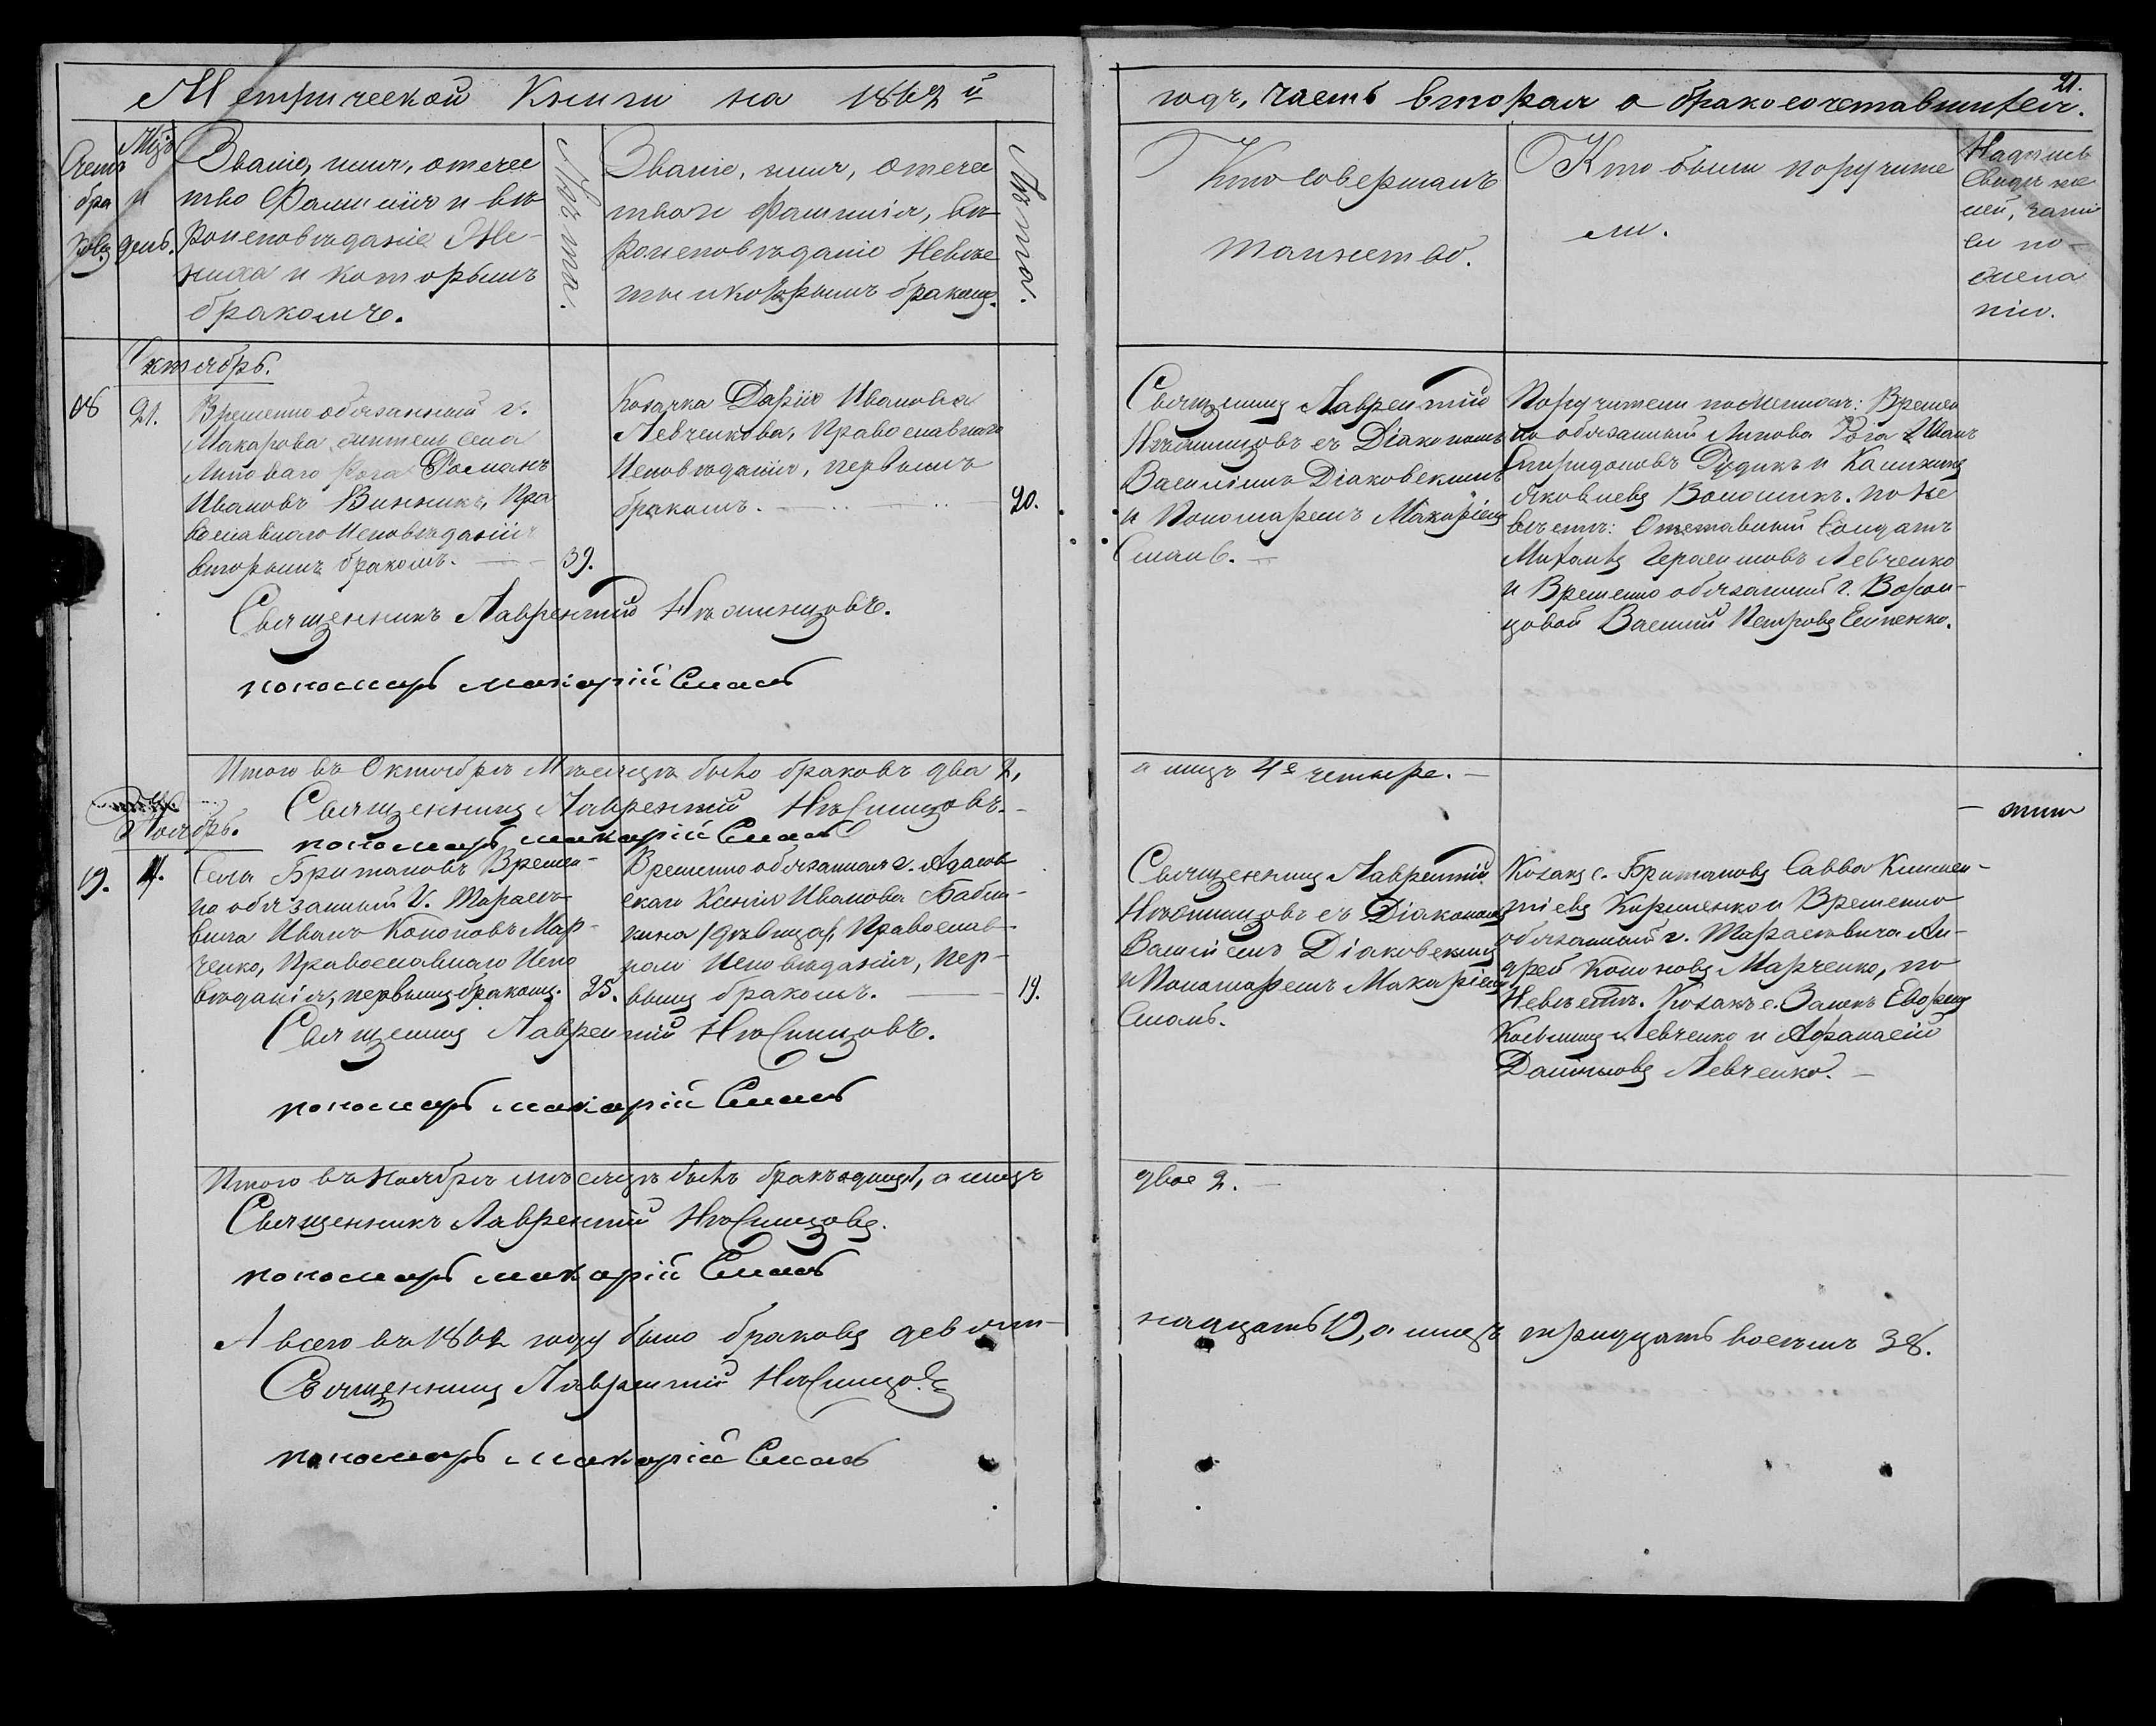 Метрической Книги на 1862й
годъ, часть вторая о бракосочетавшихся.
21.
Счетъ
бра
ковъ
Мцъ
и
день.
Званіе, имя, отечес
тво Фамилія и вѣ
роисповѣданіе Же-
ниха и которымъ
бракомъ.
Лѣта.
Званіе, имя, отечес
тво и Фамилія, вѣ
роисповѣданіе Невѣс
ты и которымъ бракомъ.
Лѣта.
Кто совершалъ
таинство.
Кто были поручите
ли.
Надпись
свидѣте
лей,
по
желанію.
Октябрь.
18
21.
Временно обязанный г.
Макарова житель села
Липоваго Рога Романъ
Ивановъ Винникъ, Пра
вославнаго Исповѣданія
вторымъ бракомъ.
39.
Козачка Дарія Иванова
Левченкова, Православнаго
Исповѣданія, первымъ
бракомъ.
20.
Священникъ Лаврентій
Нѣсминцовъ съ Діакономъ
Василіемъ Діаковскимъ
и Пономаремъ Макаріемъ
Смаль.
Поручители по Женихѣ: Времен
но обязанный Липова Рога Иванъ
Спиридоновъ Дудикъ и Калиникъ
Яковлевъ Волошикъ. по Не
вѣстѣ: Отставный Солдатъ
Михаилъ Герасимовъ Левченко
и Временно обязанный г. Ворон-
цовой Василій Петровъ Есипенко.
Священникъ Лаврентій Нѣсминцовъ.
пономарь макарій Смаль
Итого въ Октябрѣ Мѣсяцѣ было браковъ два 2,
а лицъ 4е четыре.
Священникъ Лаврентій Нѣсминцовъ.
пономарь макарій Смаль
Ноябрь.
19.
4.
Села Британовъ Времен-
но обязанный г. Тарасе-
вича Иванъ Кононовъ Мар-
ченко, Православнаго Испо
вѣданія, первымъ бракомъ.
25.
Временно обязанная г. Адасов
скаго Ксенія Иванова Бабич-
кина /дѣвица/, Православ-
наго Исповѣданія, пер-
вымъ бракомъ.
19.
Священникъ Лаврентій
Нѣсминцовъ съ Діакономъ
Василіемъ Діаковскимъ
и Пономаремъ Макаріемъ
Смаль.
Козакъ с. Британовъ Савва Климен-
тіевъ Кириченко и Временно
обязанный г. Тарасевича Ан-
дрей Кононовъ Марченко, по
Невѣстѣ. Козакъ с. Евфимъ
Косьминъ Левченко и Афанасій
Даниловъ Левченко.
Священникъ Лаврентій Нѣсминцовъ.
пономарь макарій Смаль
Итого въ Ноябрѣ мѣсяцѣ былъ бракъ одинъ 1, а лицъ
двое 2.
Священникъ Лаврентій Нѣсминцовъ.
пономарь макарій Смаль
А всего въ 1862 году было браковъ девят-
надцать 19, а лицъ тридцать восемь 38.
Священникъ Лаврентій Нѣсминцовъ
пономарь макарій Смаль